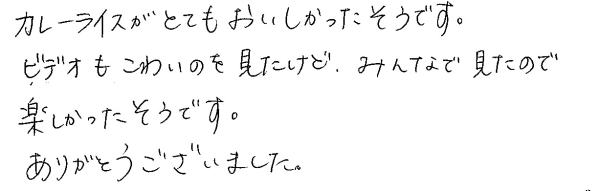 カレーライスがとてもおいしかったそうです。
ビデオもこわいのを見たけど、みんなで見たので
楽しかったそうです。
ありがとうございました。